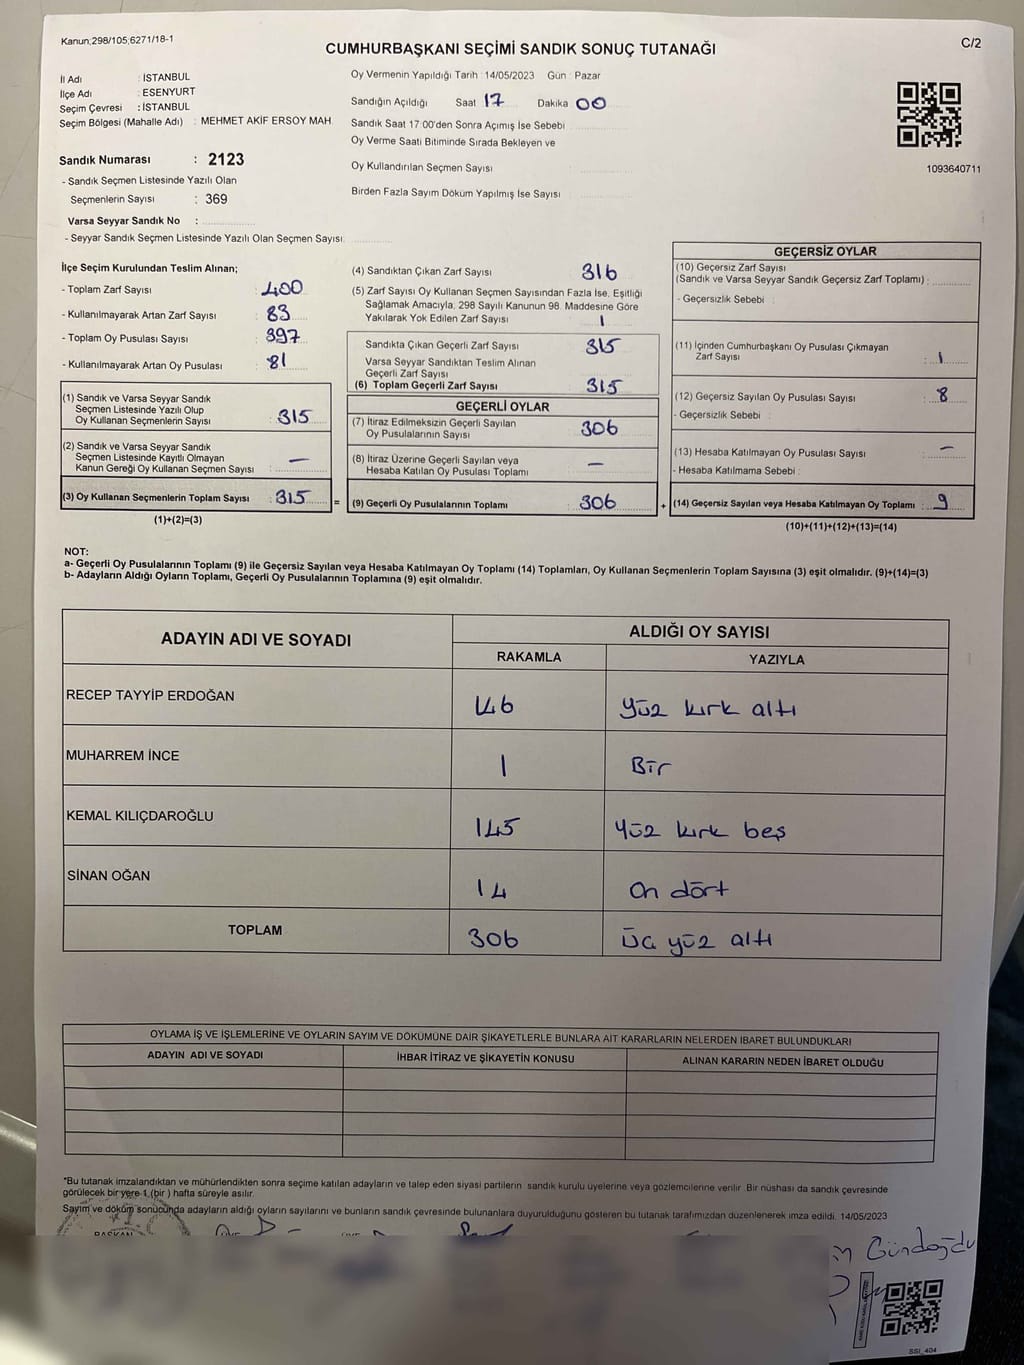 Kanun;298/105;6271/18-1
C/2
CUMHURBAŞKANI SEÇİMİ SANDIK SONUÇ TUTANAĞI
İl Adı : İSTANBUL
İlçe Adı : ESENYURT
Seçim Çevresi : İSTANBUL
Seçim Bölgesi (Mahalle Adı) : MEHMET AKİF ERSOY MAH.
Sandık Numarası : 2123
- Sandık Seçmen Listesinde Yazılı Olan
Seçmenlerin Sayısı : 369
Varsa Seyyar Sandık No :
- Seyyar Sandık Seçmen Listesinde Yazılı Olan Seçmen Sayısı:
Oy Vermenin Yapıldığı Tarih : 14/05/2023 Gün : Pazar
Sandığın Açıldığı Saat 17 Dakika 00
Sandık Saat 17:00'den Sonra Açımış İse Sebebi
Oy Verme Saati Bitiminde Sırada Bekleyen ve
Oy Kullandırılan Seçmen Sayısı
Birden Fazla Sayım Döküm Yapılmış İse Sayısı
1093640711
İlçe Seçim Kurulundan Teslim Alınan;
- Toplam Zarf Sayısı : 400
- Kullanılmayarak Artan Zarf Sayısı : 83
- Toplam Oy Pusulası Sayısı : 397
- Kullanılmayarak Artan Oy Pusulası : 81
(1) Sandık ve Varsa Seyyar Sandık
Seçmen Listesinde Yazılı Olup
Oy Kullanan Seçmenlerin Sayısı : 315
(2) Sandık ve Varsa Seyyar Sandık
Seçmen Listesinde Kayıtlı Olmayan
Kanun Gereği Oy Kullanan Seçmen Sayısı : —
(3) Oy Kullanan Seçmenlerin Toplam Sayısı : 315
(1)+(2)=(3)
=
(4) Sandıktan Çıkan Zarf Sayısı 316
(5) Zarf Sayısı Oy Kullanan Seçmen Sayısından Fazla İse, Eşitliği
Sağlamak Amacıyla, 298 Sayılı Kanunun 98. Maddesine Göre
Yakılarak Yok Edilen Zarf Sayısı 1
Sandıkta Çıkan Geçerli Zarf Sayısı 315
Varsa Seyyar Sandıktan Teslim Alınan
Geçerli Zarf Sayısı
(6) Toplam Geçerli Zarf Sayısı 315
GEÇERLİ OYLAR
(7) İtiraz Edilmeksizin Geçerli Sayılan
Oy Pusulalarının Sayısı 306
(8) İtiraz Üzerine Geçerli Sayılan veya
Hesaba Katılan Oy Pusulası Toplamı —
(9) Geçerli Oy Pusulalarının Toplamı 306
+
GEÇERSİZ OYLAR
(10) Geçersiz Zarf Sayısı
(Sandık ve Varsa Seyyar Sandık Geçersiz Zarf Toplamı) :
- Geçersizlik Sebebi :
(11) İçinden Cumhurbaşkanı Oy Pusulası Çıkmayan
Zarf Sayısı : 1
(12) Geçersiz Sayılan Oy Pusulası Sayısı : 8
- Geçersizlik Sebebi :
(13) Hesaba Katılmayan Oy Pusulası Sayısı : —
- Hesaba Katılmama Sebebi :
(14) Geçersiz Sayılan veya Hesaba Katılmayan Oy Toplamı : 9
(10)+(11)+(12)+(13)=(14)
NOT:
a- Geçerli Oy Pusulalarının Toplamı (9) ile Geçersiz Sayılan veya Hesaba Katılmayan Oy Toplamı (14) Toplamları, Oy Kullanan Seçmenlerin Toplam Sayısına (3) eşit olmalıdır. (9)+(14)=(3)
b- Adayların Aldığı Oyların Toplamı, Geçerli Oy Pusulalarının Toplamına (9) eşit olmalıdır.
ADAYIN ADI VE SOYADI
ALDIĞI OY SAYISI
RAKAMLA YAZIYLA
RECEP TAYYİP ERDOĞAN 146 yüz kırk altı
MUHARREM İNCE 1 Bir
KEMAL KILIÇDAROĞLU 145 Yüz kırk beş
SİNAN OĞAN 14 On dört
TOPLAM 306 Üç yüz altı
OYLAMA İŞ VE İŞLEMLERİNE VE OYLARIN SAYIM VE DÖKÜMÜNE DAİR ŞİKAYETLERLE BUNLARA AİT KARARLARIN NELERDEN İBARET BULUNDUKLARI
ADAYIN ADI VE SOYADI İHBAR İTİRAZ VE ŞİKAYETİN KONUSU ALINAN KARARIN NEDEN İBARET OLDUĞU
*Bu tutanak imzalandıktan ve mühürlendikten sonra seçime katılan adayların ve talep eden siyasi partilerin sandık kurulu üyelerine veya gözlemcilerine verilir. Bir nüshası da sandık çevresinde
görülecek bir yere 1 (bir ) hafta süreyle asılır.
Sayım ve döküm sonucunda adayların aldığı oyların sayılarını ve bunların sandık çevresinde bulunanlara duyurulduğunu gösteren bu tutanak tarafımızdan düzenlenerek imza edildi. 14/05/2023
BAŞKAN
Gündoğdu
SSİ_404